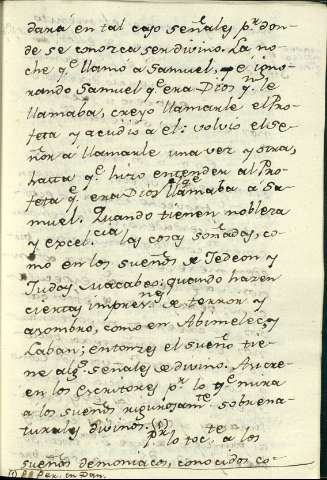 dara en tal caso señales pr don-
de se conozca ser divino. La no-
che qe llamó a Samuel, e igno-
rando Samuel qe era Dios qn le
llamaba, creyó llamarle el Pro-
feta y acudió a él: volvio el Se-
ñor a llamarle una vez y otra,
hasta qe hizo entender al Pro-
feta qe era Dios el qe llamaba a Sa-
muel. Quando tienen nobleza
y excel.cia las cosas soñadas, co-
mo en los sueños de Jedeon y
Judas Macabeo: quando hazen
ciertas impres.nes de terror y
asombro, como en Abimelec, y
Laban; entonzes el sueño tie-
ne algs señales de divino. Asi cre-
en los Escritores pr lo qe mira
a los sueños rigurosamte sobrena-
turales divinos. (1)
Pr lo toc.te a los
sueños demoniacos, conocidos co-
(1) Per. in Dan.